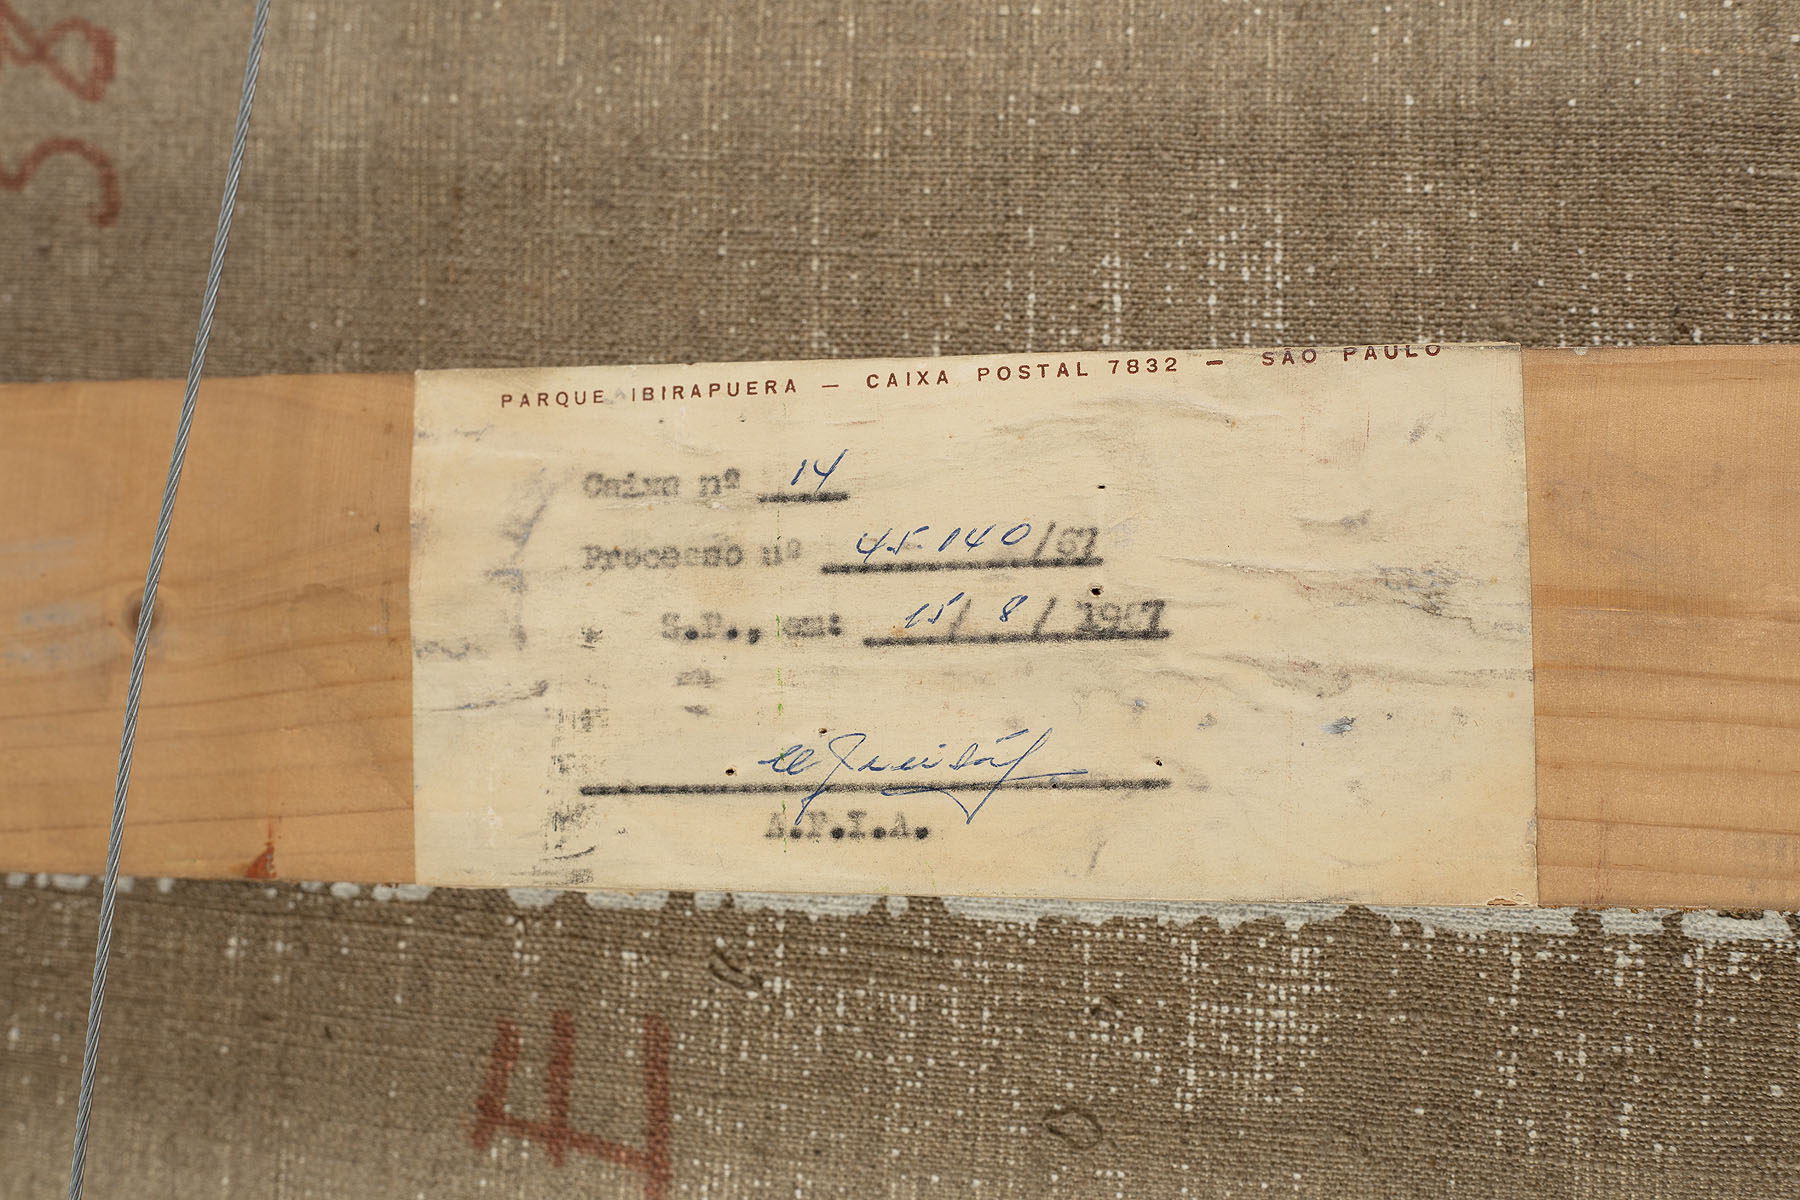 58
PARQUE IBIRAPUERA — CAIXA POSTAL 7832 — SÃO PAULO
Caixa nº 14
Processo nº 45.140/57
S.P., em: 15/ 8 / 1957
A.F.I.A.